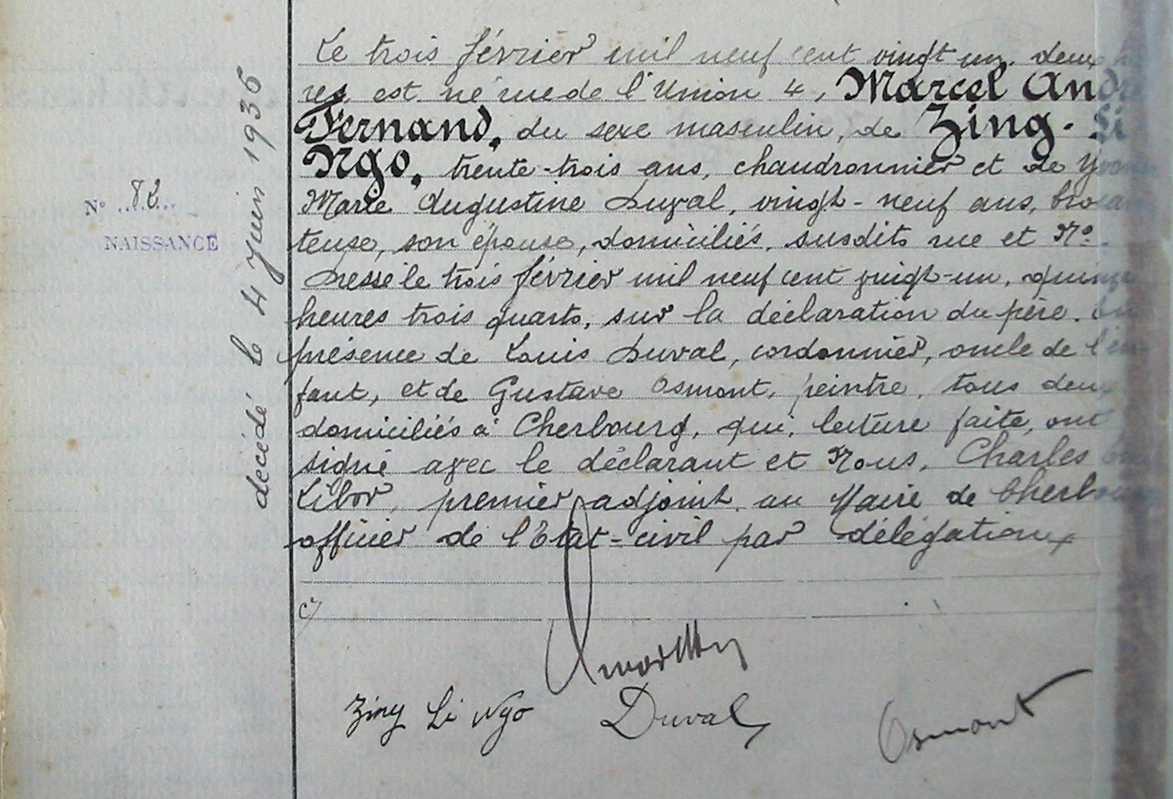 décédé le 4 Juin 1936
N° 82
NAISSANCE
Le trois février mil neuf cent vingt un, deux
res est né rue de l'Union 4, Marcel André
Fernand, du sexe masculin, de Zing-Li-
Ngo, trente-trois ans, chaudronnier et de Yvonne
Marie Augustine Duval, vingt-neuf ans, brocan
teuse, son épouse, domiciliés, susdits rue et No.
Dressé le trois février mil neuf cent vingt-un, quinze
heures trois quarts, sur la déclaration du père. En
présence de Louis Duval, cordonnier, oncle de l'en
fant, et de Gustave Osmont, peintre, tous deux
domiciliés à Cherbourg, qui, lecture faite, ont
signé avec le déclarant et Nous, Charles
Libor, premier adjoint au Maire de Cherbourg
officier de l'Etat-civil par délégation
Zing Li Ngo Duval Osmont